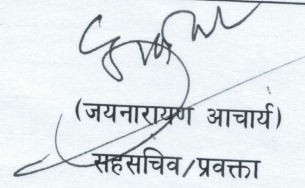 (जयनारायण आचार्य)
सहसचिव/प्रवक्ता